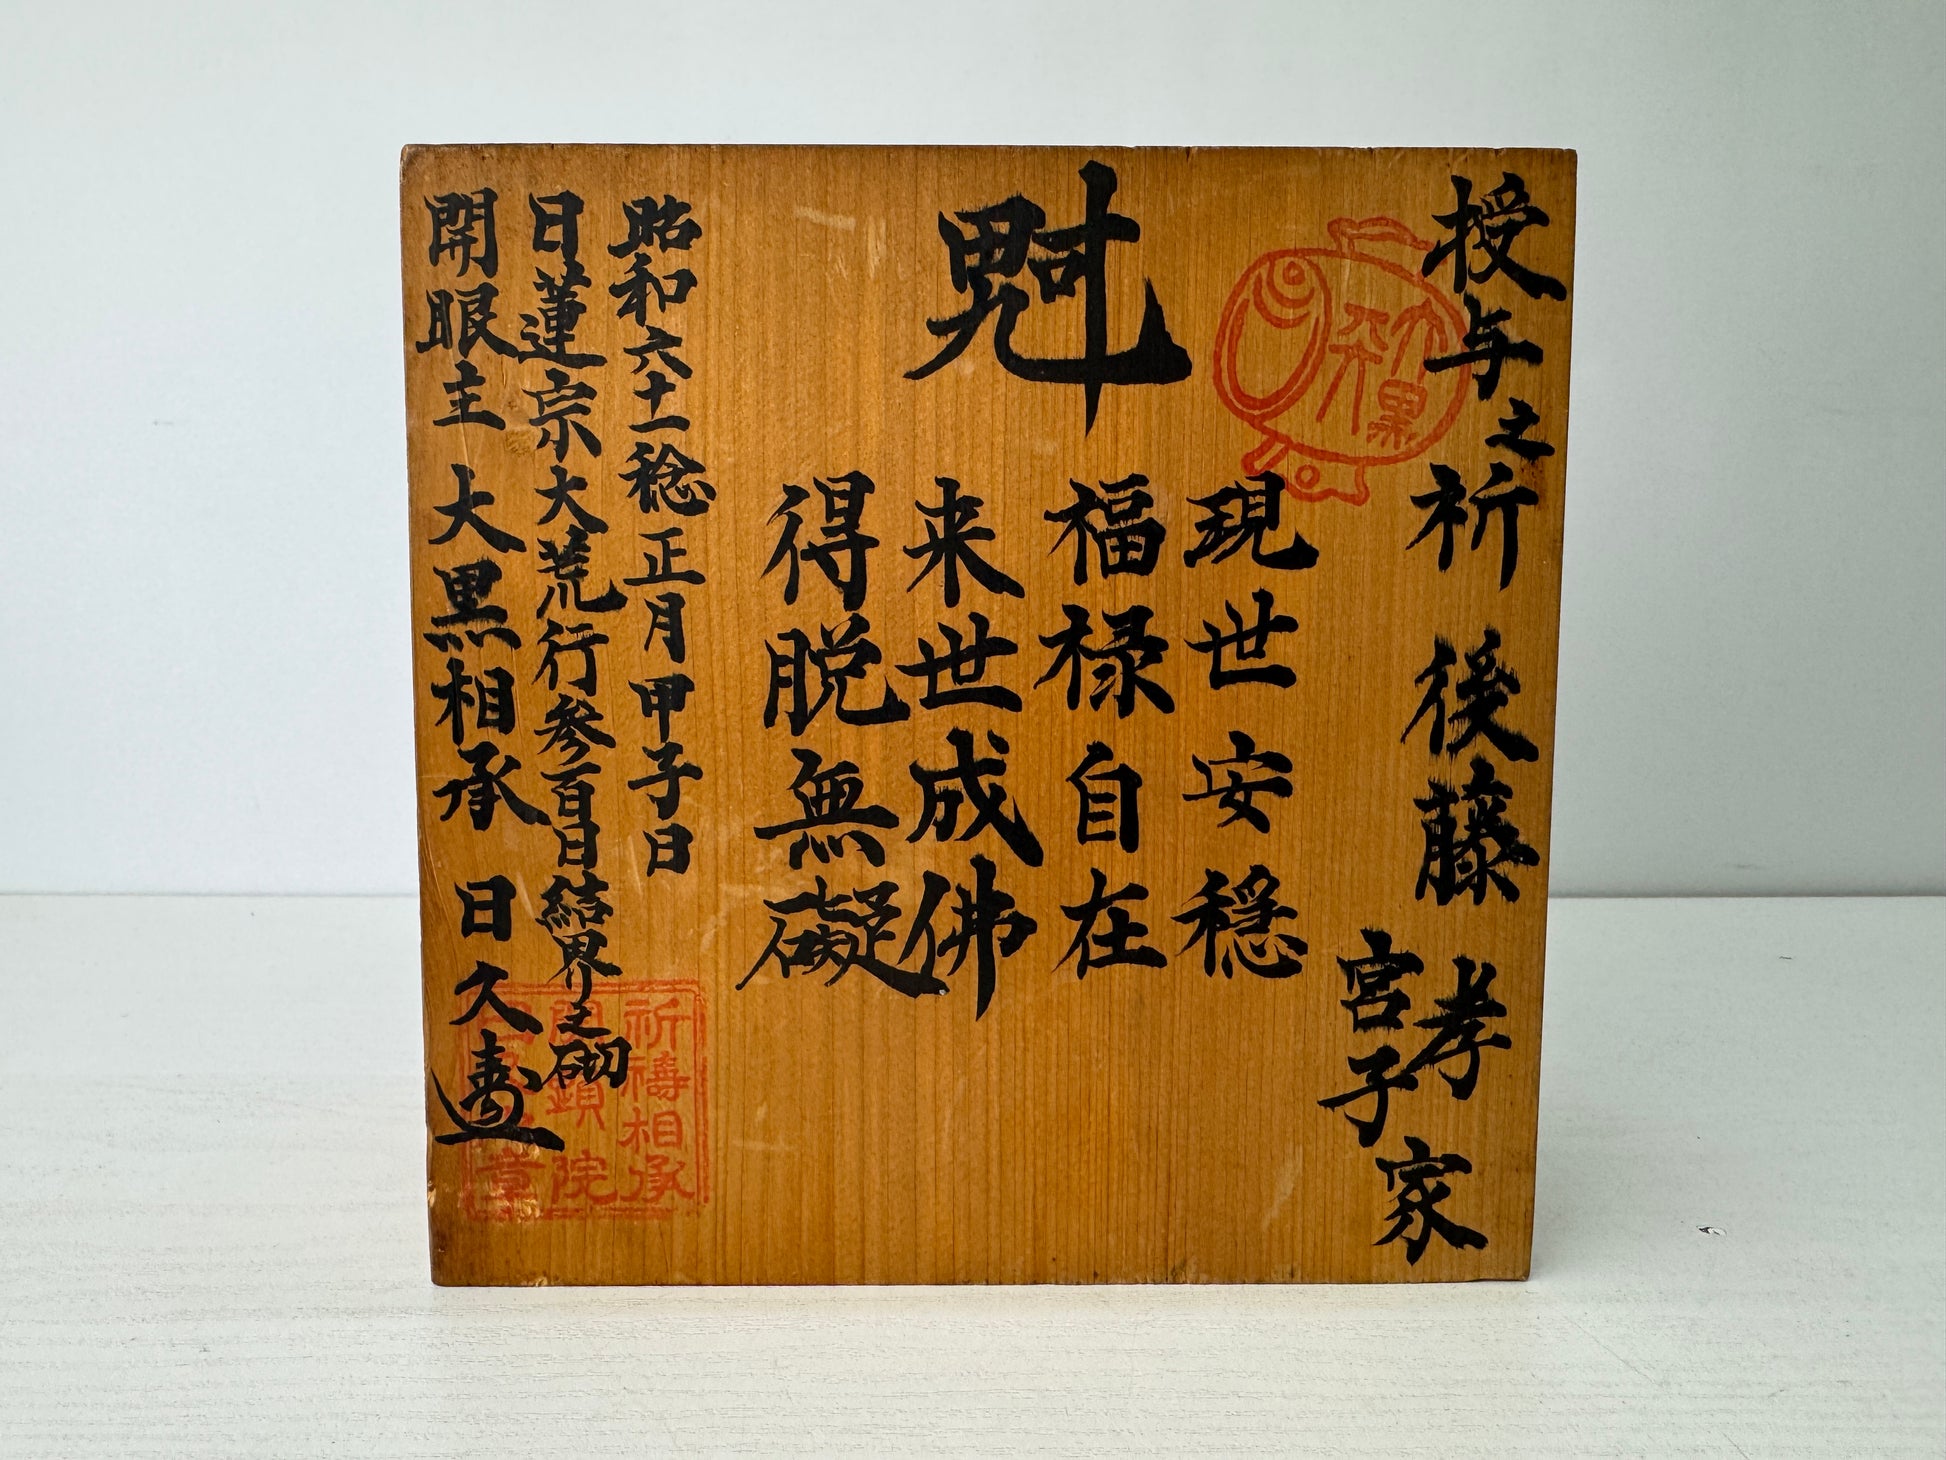 授与之 祈 後藤 孝
宮子 家
現世安穏
福禄自在
来世成佛
得脱無礙
昭和六十一稔正月甲子日
日蓮宗大荒行参百日結界之砌
開眼主 大黒相承 日久
祈禱相承
院
章